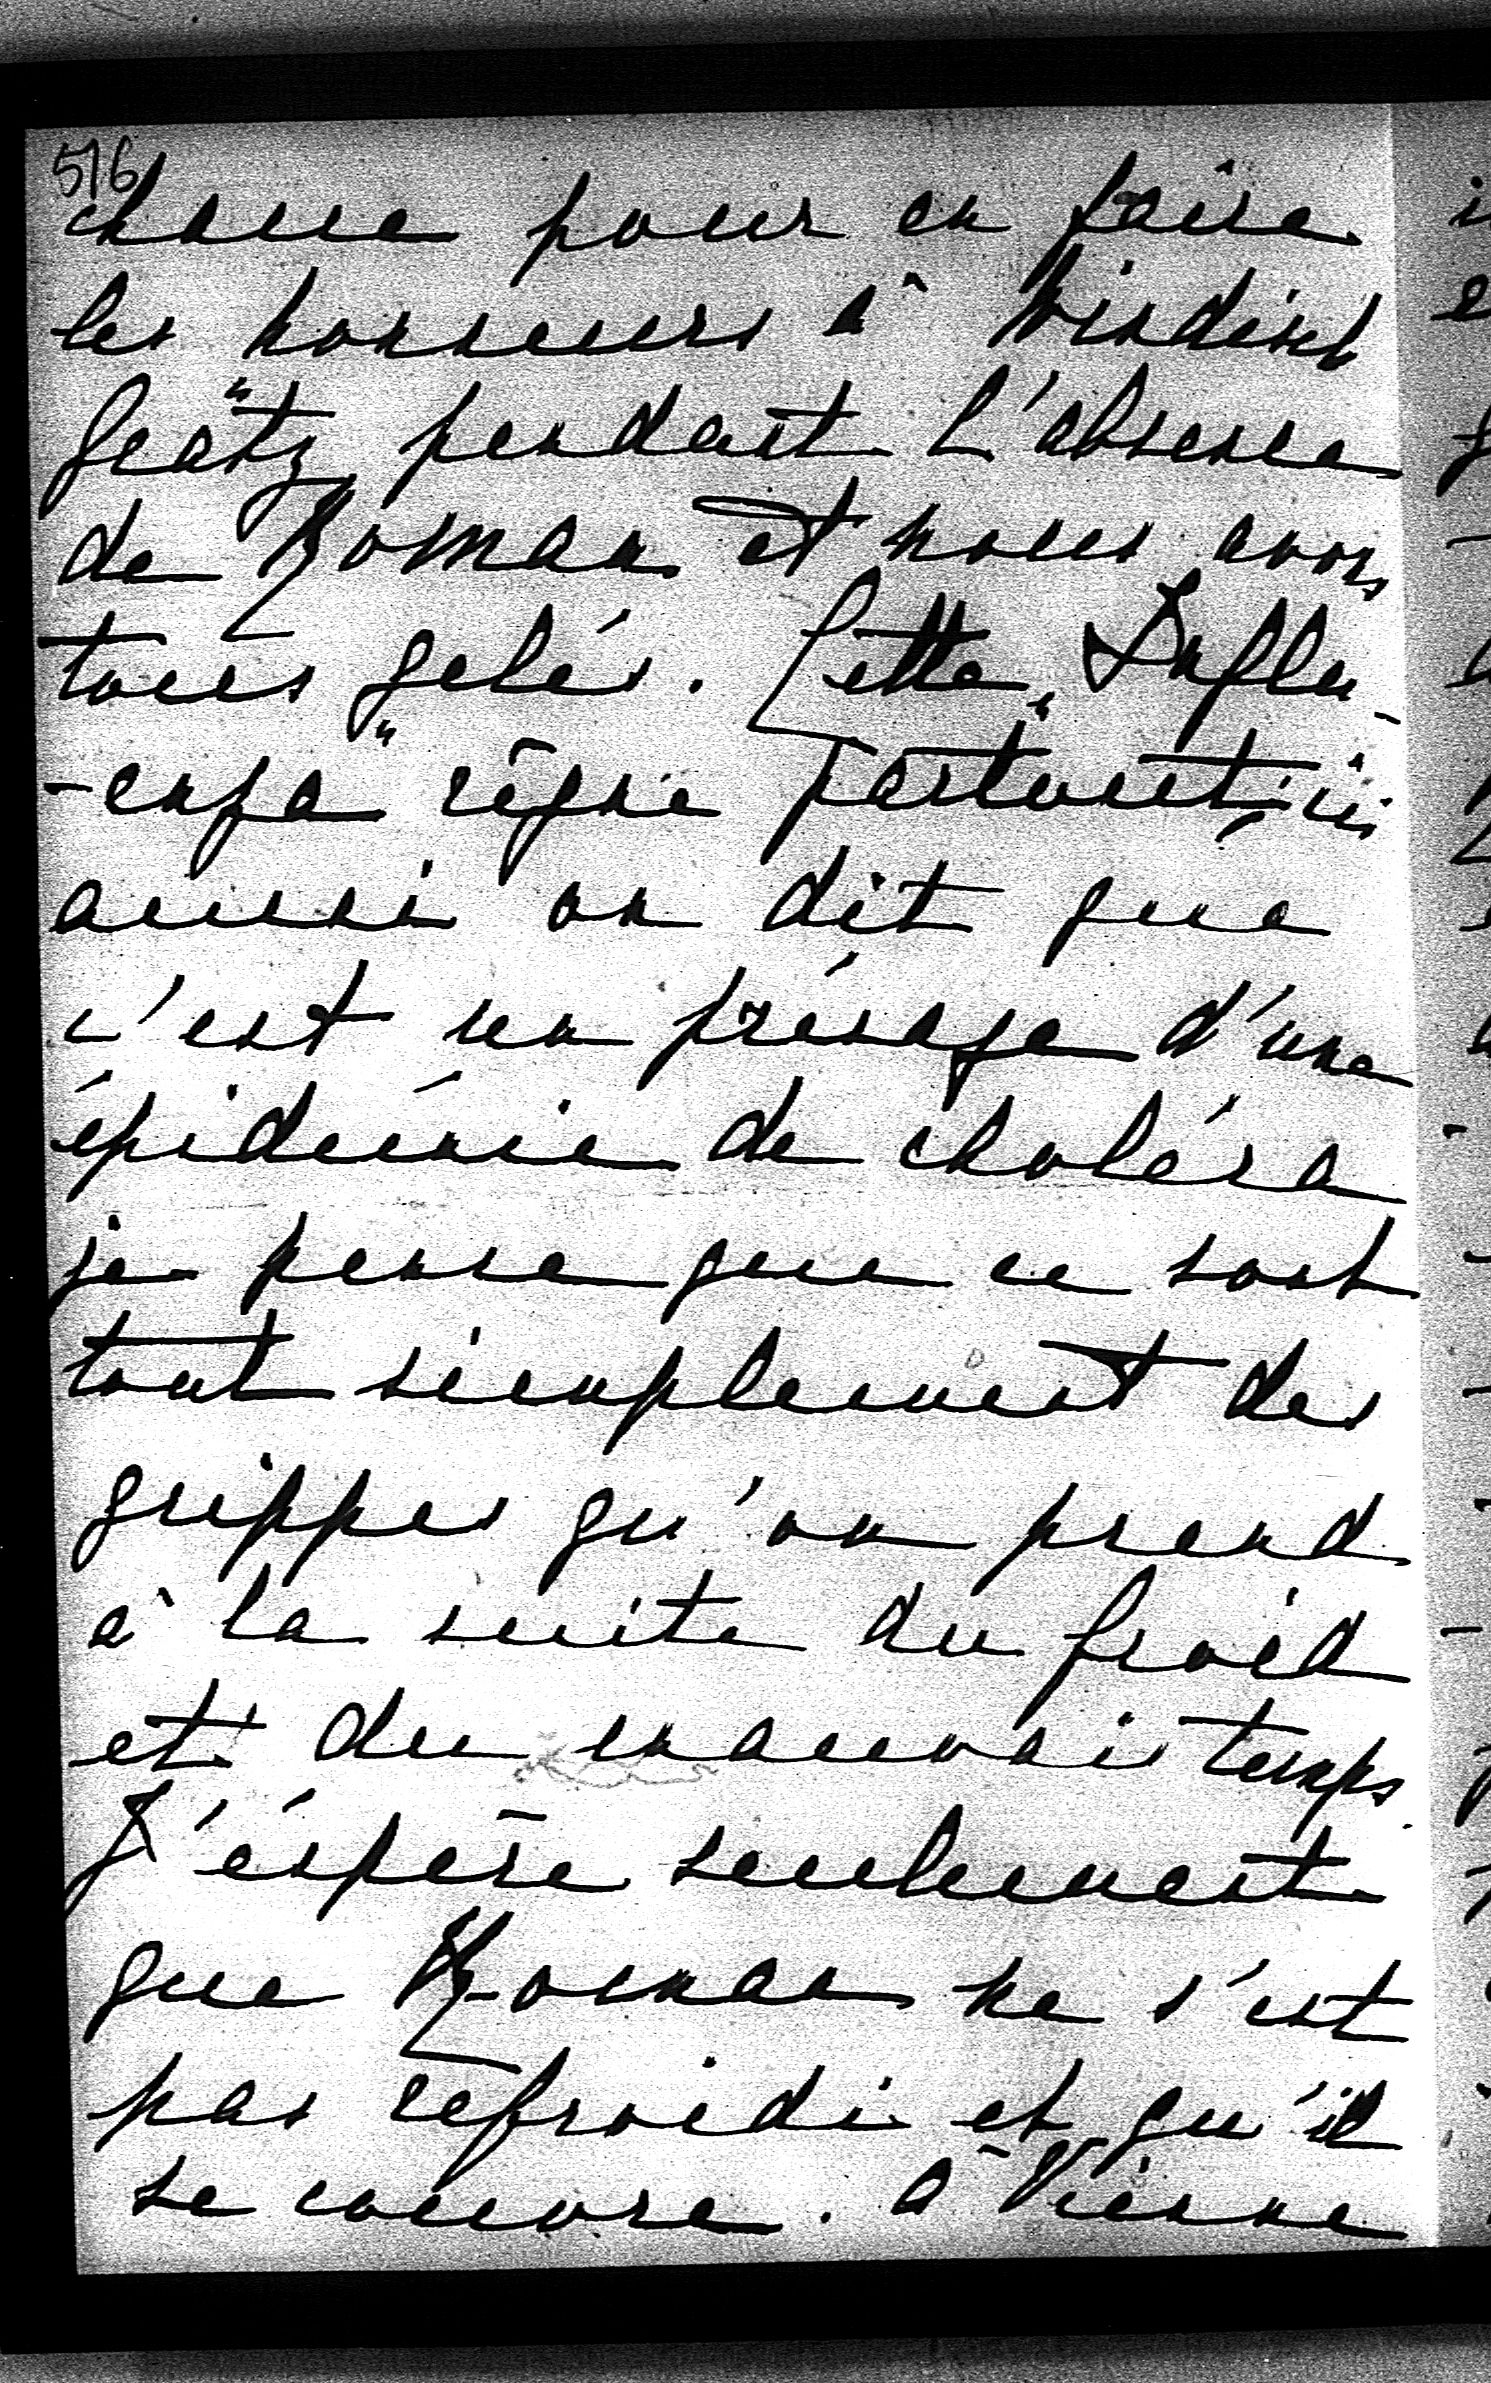 516
chasse pour en faire
les honneurs à Windisch
Graëtz pendant l'absence
de Roman et nous avons
tous gelés. Cette „Influ-
-enza" règne partout, ici
aussi on dit que
c'est un présage d'une
épidémie de choléra
je pense que ce sont
tout simplement des
grippes qu'on prend
à la suite du froid
et du mauvais temps.
J'éspère seulement
que Roman ne s'est
pas réfroidi et qu'il
se couvre. à Vienne